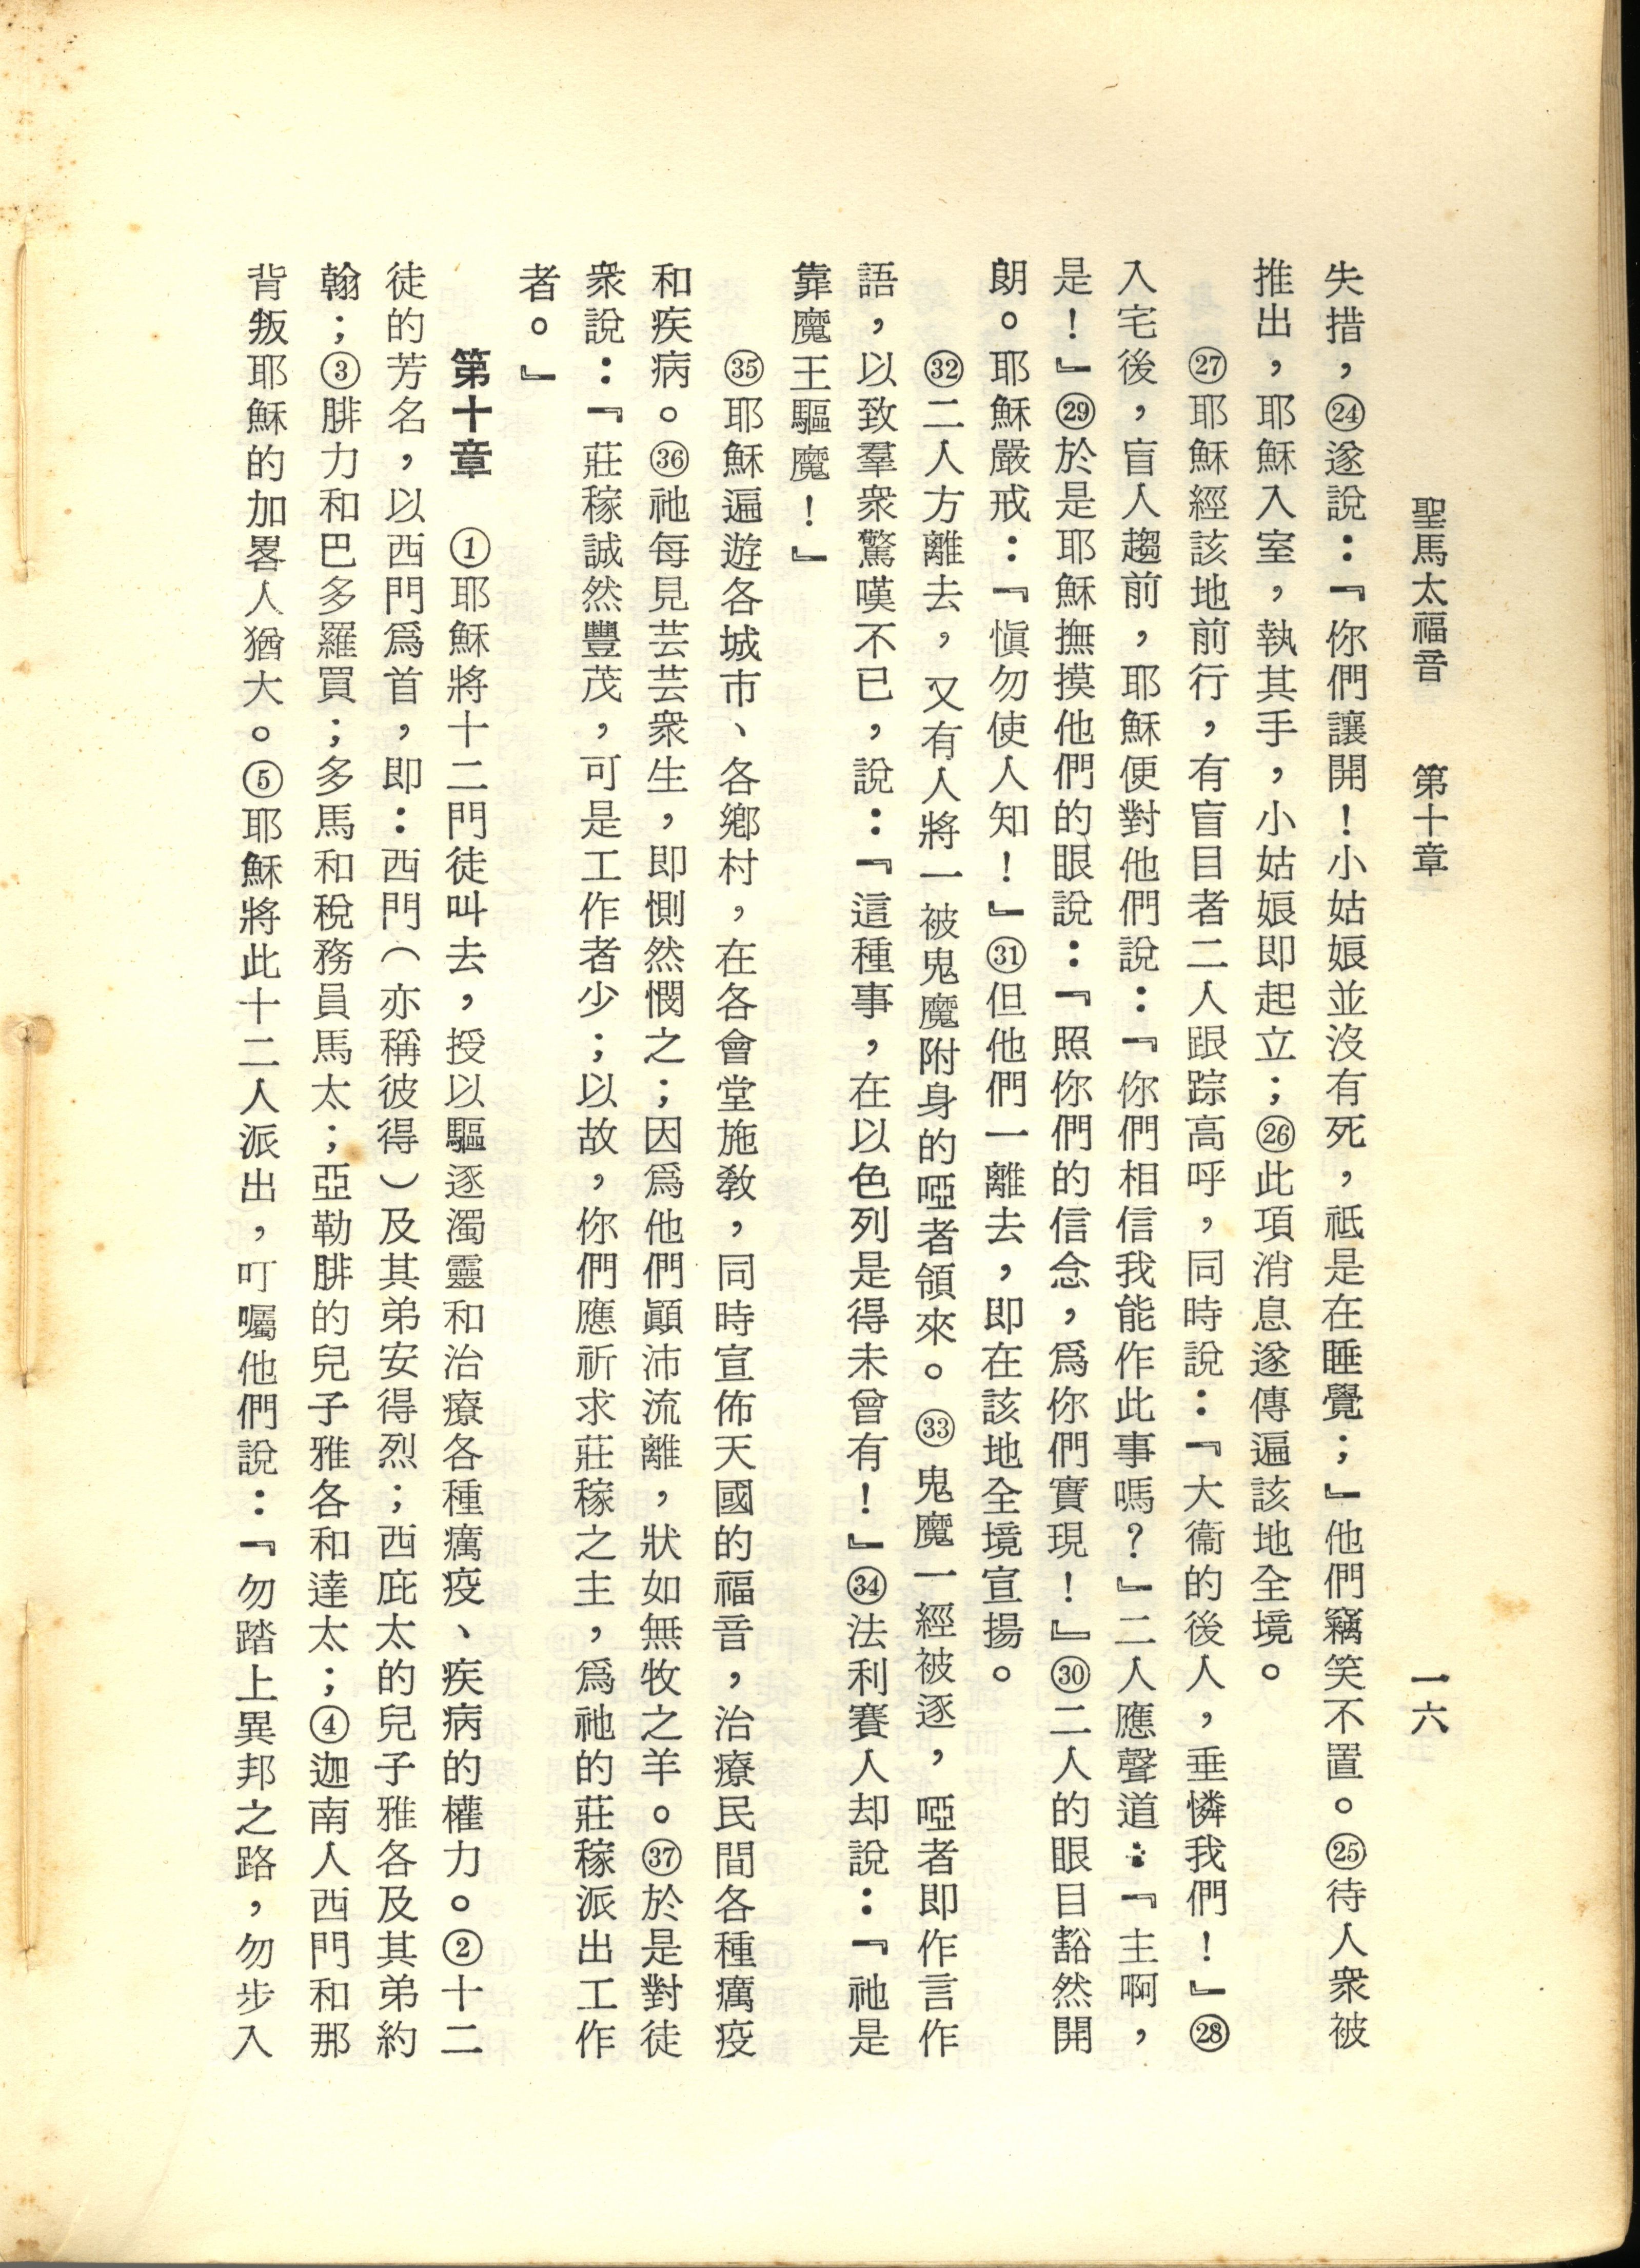 聖馬太福音　第十章　一六
失措，㉔遂說：『你們讓開！小姑娘並沒有死，祗是在睡覺；』他們竊笑不置。㉕待人衆被
推出，耶穌入室，執其手，小姑娘即起立；㉖此項消息遂傳遍該地全境。
㉗耶穌經該地前行，有盲目者二人跟踪高呼，同時說：『大衞的後人，垂憐我們！』㉘
入宅後，盲人趨前，耶穌便對他們說：『你們相信我能作此事嗎？』二人應聲道：『主啊，
是！』㉙於是耶穌撫摸他們的眼說：『照你們的信念，爲你們實現！』㉚二人的眼目豁然開
朗。耶穌嚴戒：『愼勿使人知！』㉛但他們一離去，即在該地全境宣揚。
㉜二人方離去，又有人將一被鬼魔附身的啞者領來。㉝鬼魔一經被逐，啞者即作言作
語，以致羣衆驚嘆不已，說：『這種事，在以色列是得未曾有！』㉞法利賽人却說：『祂是
靠魔王驅魔！』
㉟耶穌遍遊各城市、各鄉村，在各會堂施敎，同時宣佈天國的福音，治療民間各種癘疫
和疾病。㊱祂每見芸芸衆生，即惻然憫之；因爲他們顚沛流離，狀如無牧之羊。㊲於是對徒
衆說：『莊稼誠然豐茂，可是工作者少；以故，你們應祈求莊稼之主，爲祂的莊稼派出工作
者。』
第十章　①耶穌將十二門徒叫去，授以驅逐濁靈和治療各種癘疫、疾病的權力。②十二
徒的芳名，以西門爲首，即：西門（亦稱彼得）及其弟安得烈；西庇太的兒子雅各及其弟約
翰；③腓力和巴多羅買；多馬和稅務員馬太；亞勒腓的兒子雅各和達太；④迦南人西門和那
背叛耶穌的加畧人猶大。⑤耶穌將此十二人派出，叮囑他們說：『勿踏上異邦之路，勿步入